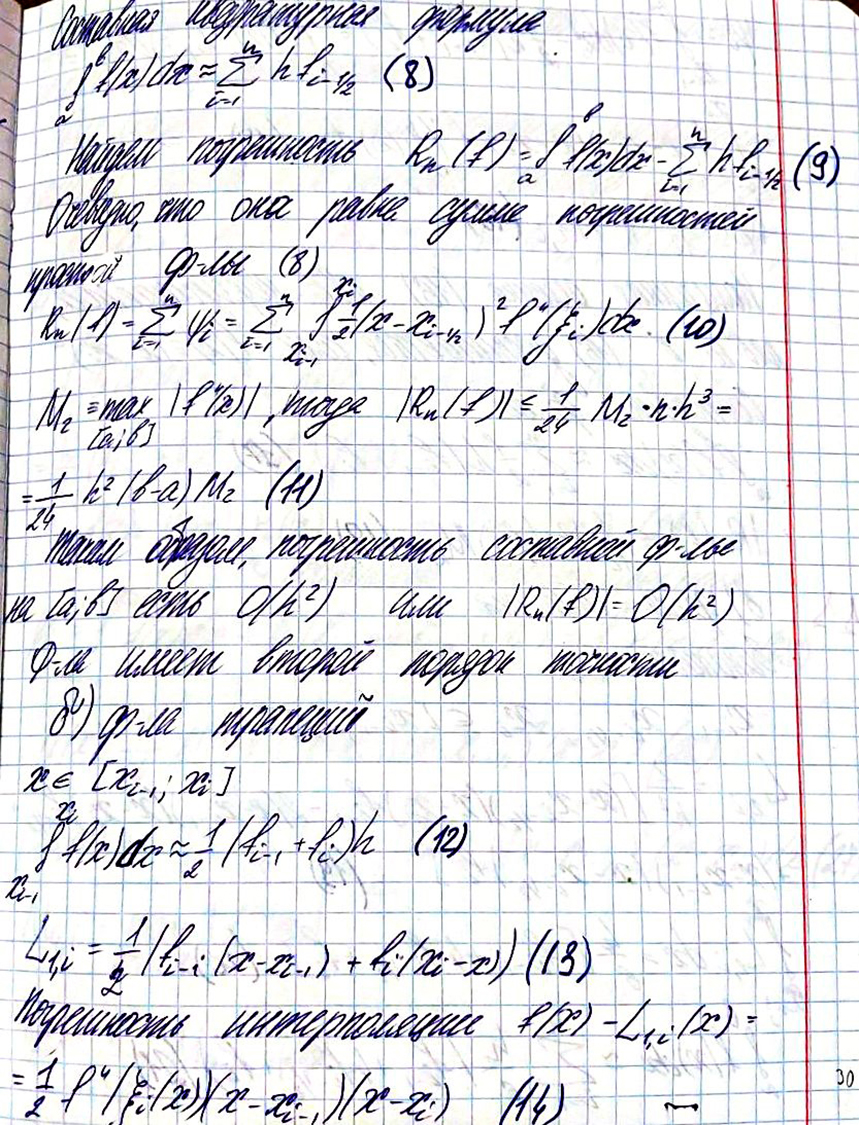 Составная квадратурная формула
∫ₐᵇ f(x)dx ≈ ∑ᵢ₌₁ⁿ h fᵢ₋₁/₂ (8)
Найдем погрешность Rₙ(f) = ∫ₐᵇ f(x)dx - ∑ᵢ₌₁ⁿ h fᵢ₋₁/₂ (9)
Очевидно, что она равна сумме погрешностей
ф-лы (8)
Rₙ(f) = ∑ᵢ₌₁ⁿ ψᵢ = ∑ᵢ₌₁ⁿ ∫_{xᵢ₋₁}^{xᵢ} 1/2 (x - xᵢ₋₁/₂)² f''(ξᵢ)dx. (10)
M₂ = max_{[a;b]} |f''(x)|, тогда |Rₙ(f)| ≤ 1/24 M₂ · n · h³ =
= 1/24 h² (b-a) M₂ (11)
Таким образом, погрешность составной ф-лы
на [a;b] есть O(h²) или |Rₙ(f)| = O(h²)
Ф-ла имеет второй порядок точности
б) ф-ла трапеций
x ∈ [xᵢ₋₁; xᵢ]
∫_{xᵢ₋₁}^{xᵢ} f(x)dx ≈ 1/2 (fᵢ₋₁ + fᵢ)h (12)
L₁,ᵢ = 1/2 (fᵢ₋ᵢ(x - xᵢ₋₁) + fᵢ(xᵢ - x)) (13)
Погрешность интерполяции f(x) - L₁,ᵢ(x) =
= 1/2 f''(ξᵢ(x))(x - xᵢ₋₁)(x - xᵢ) (14)
30